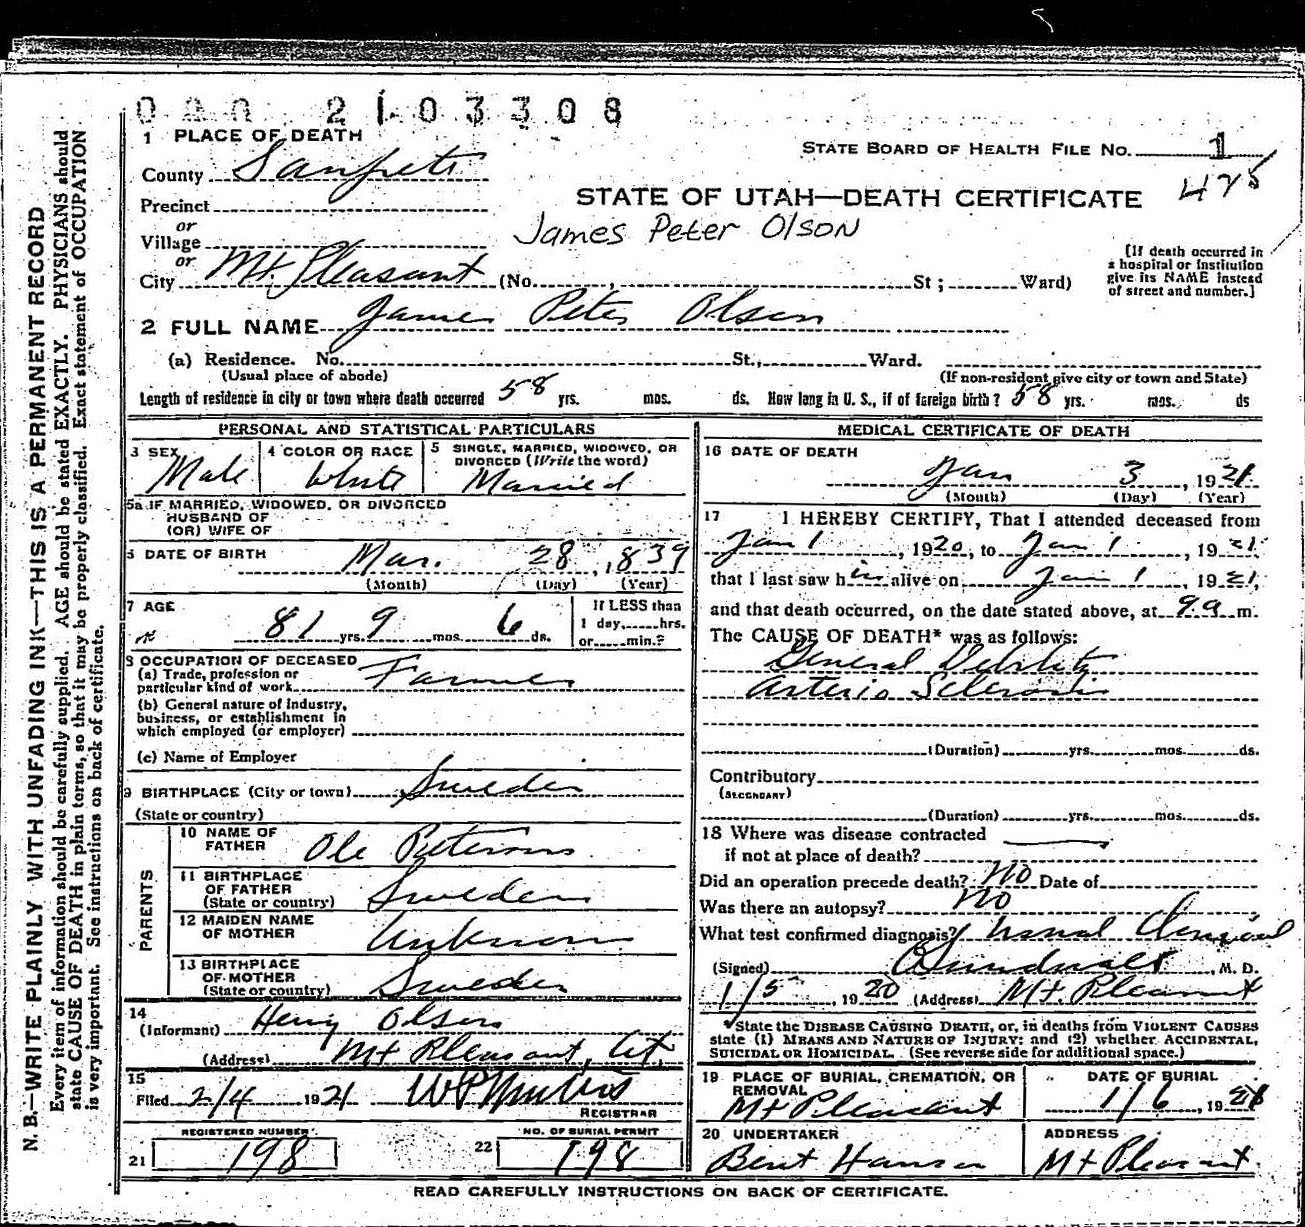 2103308
1 PLACE OF DEATH
County Sanpete
STATE BOARD OF HEALTH FILE No. 1
425
Precinct
STATE OF UTAH—DEATH CERTIFICATE
or
Village
James Peter Olson
or
City Mt. Pleasant (No. , St ; Ward)
[If death occurred in
a hospital or institution
give its NAME instead
of street and number.]
2 FULL NAME James Peter Olson
(a) Residence. No. St., Ward.
(Usual place of abode) (If non-resident give city or town and State)
Length of residence in city or town where death occurred 58 yrs. mos. ds. How long in U. S., if of foreign birth? 58 yrs. mos. ds
PERSONAL AND STATISTICAL PARTICULARS
3 SEX Male
4 COLOR OR RACE White
5 SINGLE, MARRIED, WIDOWED, OR
DIVORCED (Write the word)
Married
5a IF MARRIED, WIDOWED, OR DIVORCED
HUSBAND OF
(OR) WIFE OF
6 DATE OF BIRTH Mar. 28, 1839
(Month) (Day) (Year)
7 AGE 81 yrs. 9 mos. 6 ds.
If LESS than
1 day, hrs.
or min.?
8 OCCUPATION OF DECEASED
(a) Trade, profession or
particular kind of work Farmer
(b) General nature of industry,
business, or establishment in
which employed (or employer)
(c) Name of Employer
9 BIRTHPLACE (City or town) Sweden
(State or country)
PARENTS
10 NAME OF
FATHER Ole Peterson
11 BIRTHPLACE
OF FATHER
(State or country) Sweden
12 MAIDEN NAME
OF MOTHER Unknown
13 BIRTHPLACE
OF MOTHER
(State or country) Sweden
14
(Informant) Henry Olson
(Address) Mt Pleasant, Ut.
15
Filed 2/4 1921
REGISTRAR
REGISTERED NUMBER
21 198
NO. OF BURIAL PERMIT
22 198
MEDICAL CERTIFICATE OF DEATH
16 DATE OF DEATH
Jan 3, 1921
(Month) (Day) (Year)
17 I HEREBY CERTIFY, That I attended deceased from
Jan 1, 1920, to Jan 1, 1921
that I last saw him alive on Jan 1, 1921,
and that death occurred, on the date stated above, at 9 a m.
The CAUSE OF DEATH* was as follows:
General Debility
Arterio Sclerosis
(Duration) yrs. mos. ds.
Contributory
(SECONDARY)
(Duration) yrs. mos. ds.
18 Where was disease contracted
if not at place of death?
Did an operation precede death? No Date of
Was there an autopsy? No
What test confirmed diagnosis? Usual Clinical
(Signed) , M. D.
1/5, 1920 (Address) Mt. Pleasant
*State the DISEASE CAUSING DEATH, or, in deaths from VIOLENT CAUSES
state (1) MEANS AND NATURE OF INJURY; and (2) whether ACCIDENTAL,
SUICIDAL OR HOMICIDAL. (See reverse side for additional space.)
19 PLACE OF BURIAL, CREMATION, OR
REMOVAL
Mt Pleasant
DATE OF BURIAL
1/6, 1921
20 UNDERTAKER
Bent Hansen
ADDRESS
Mt Pleasant
READ CAREFULLY INSTRUCTIONS ON BACK OF CERTIFICATE.
N. B.—WRITE PLAINLY WITH UNFADING INK—THIS IS A PERMANENT RECORD
Every item of information should be carefully supplied. AGE should be stated EXACTLY. PHYSICIANS should
state CAUSE OF DEATH in plain terms, so that it may be properly classified. Exact statement of OCCUPATION
is very important. See instructions on back of certificate.